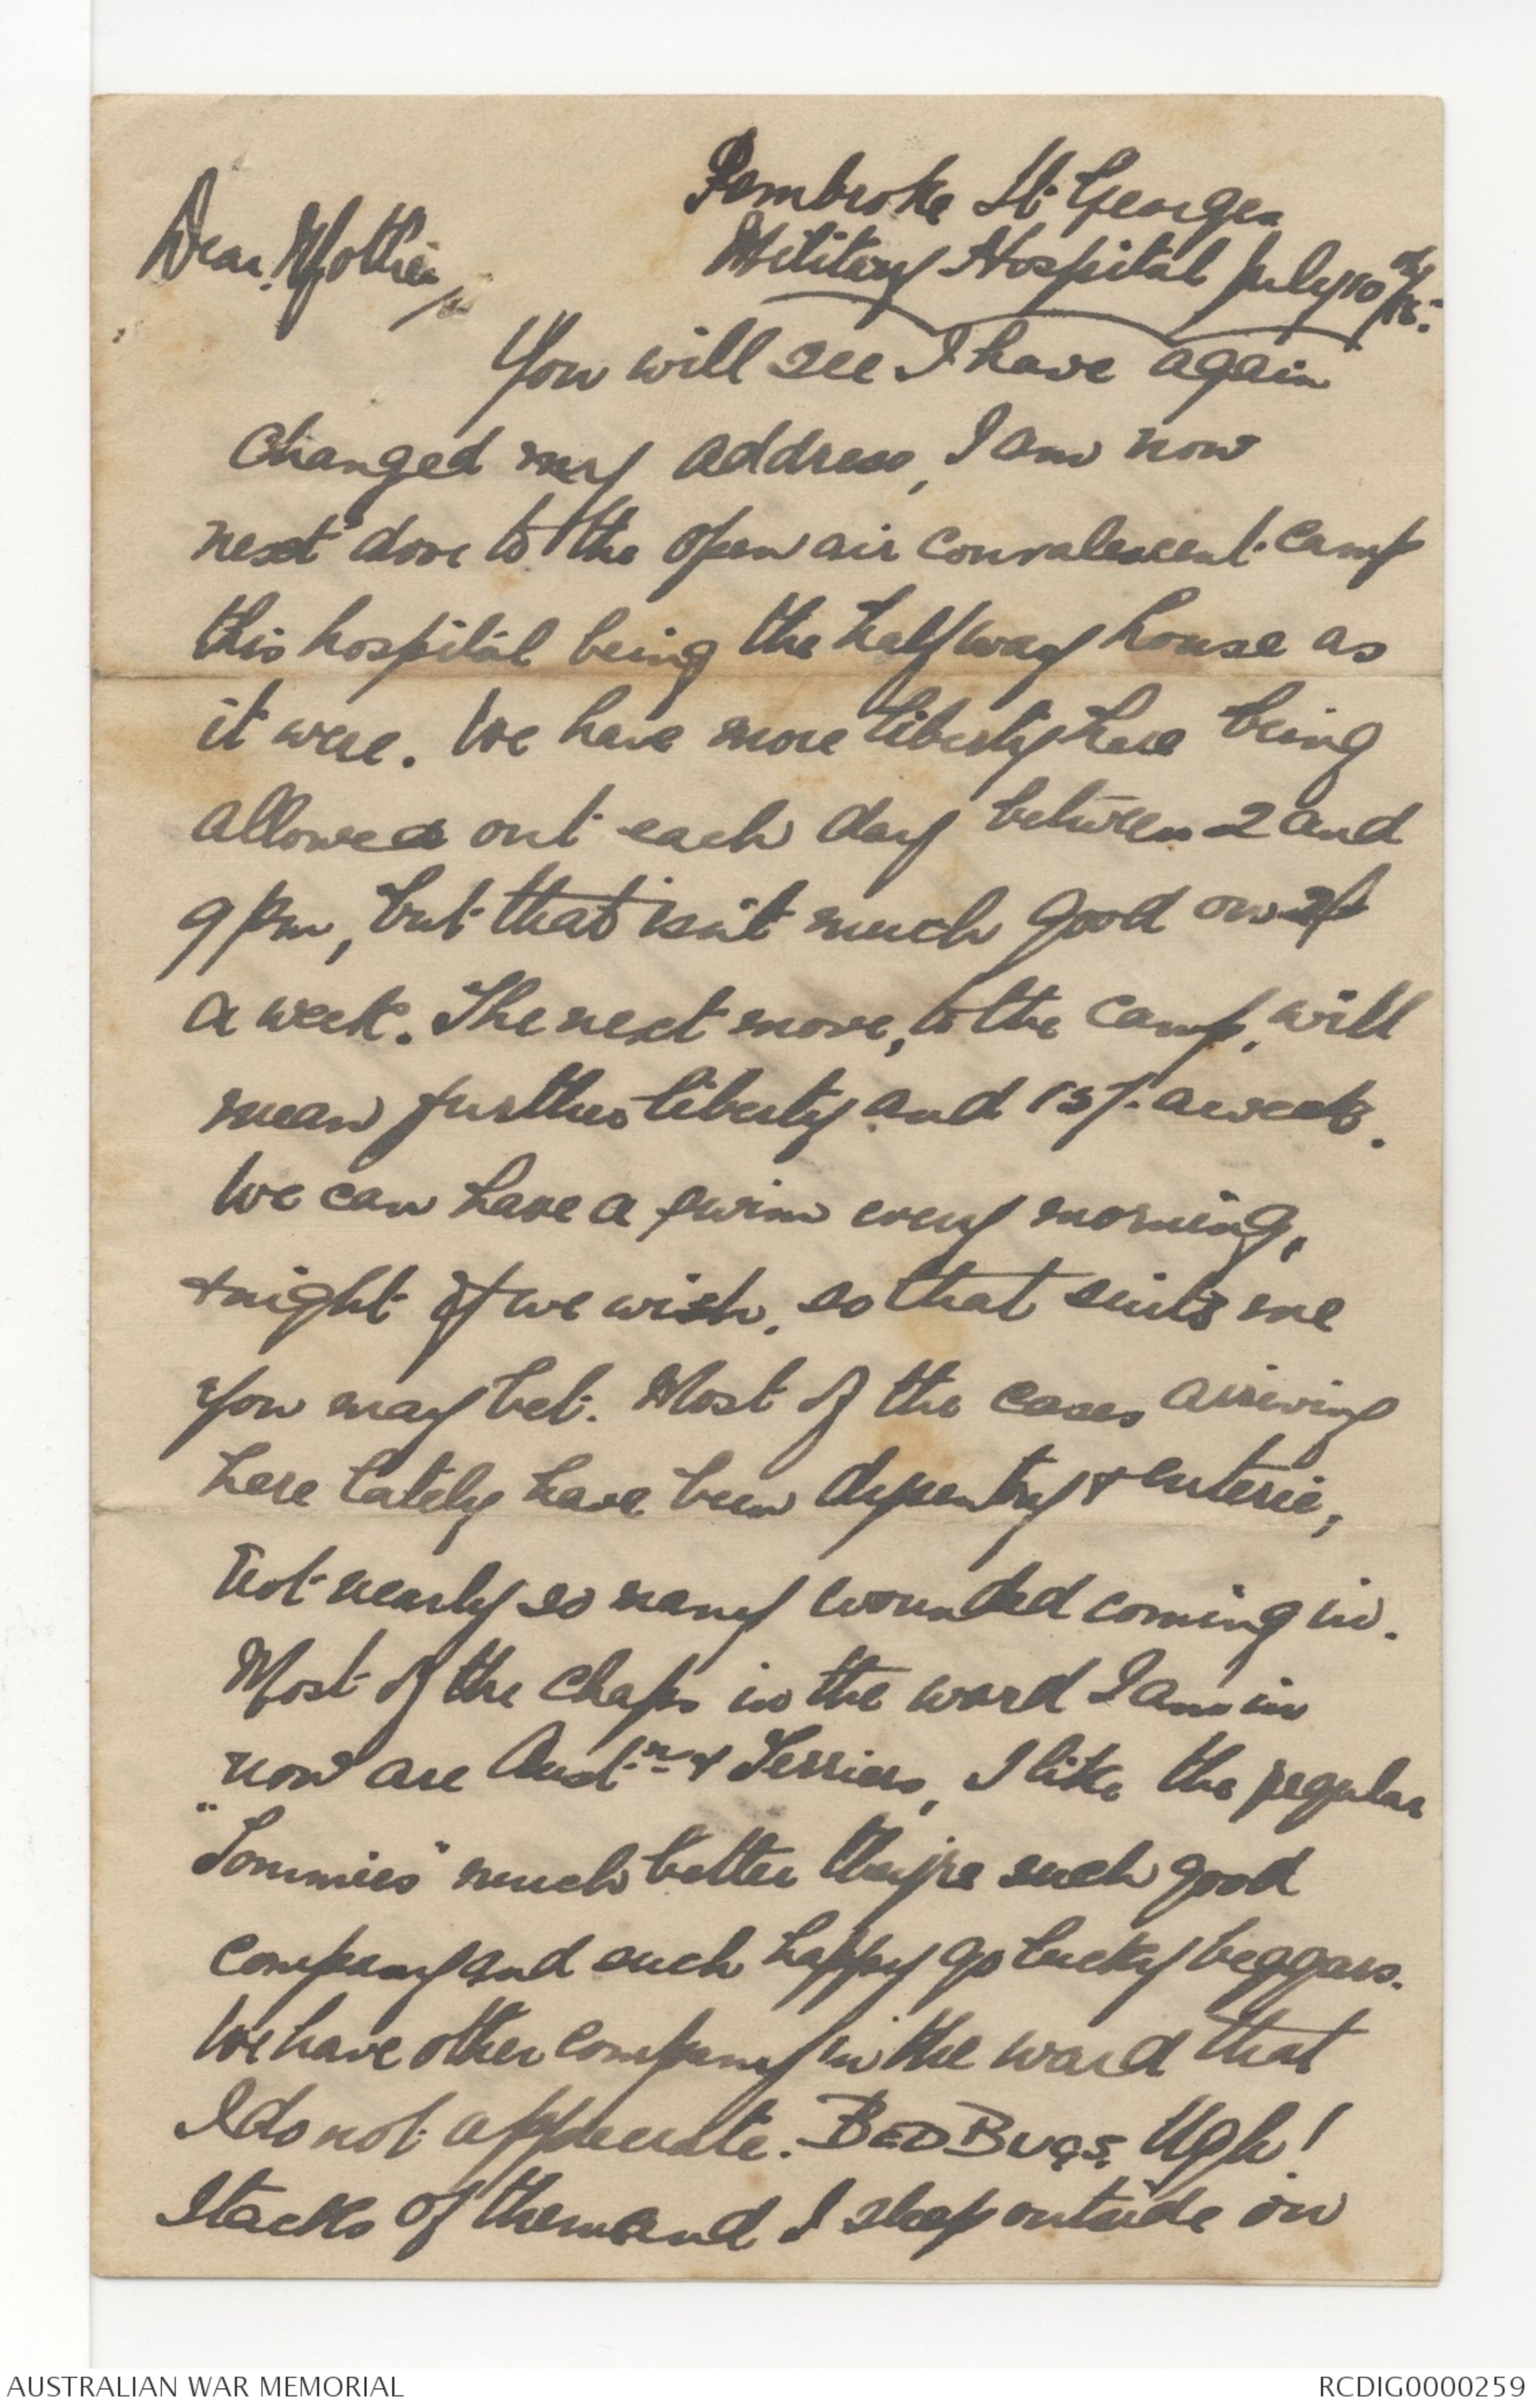 Pembroke St. Georges
Military Hospital July 10th/15.
Dear Mother,
You will see I have again
changed my address, I am now
next door to the open air convalescent camp
this hospital being the halfway house as
it were. We have more liberty here being
allowed out each day between 2 and
9 pm, but that isn't much good on 2/-
a week. The next move, to the camp, will
mean further liberty and 15/- a week.
We can have a swim every morning,
& night if we wish, so that suits me
you may bet. Most of the cases arriving
here lately have been dysentry & enteric,
not nearly so many wounded coming in.
Most of the chaps in the ward I am in
now are Aust.ns & Terriers, I like the regular
"Tommies" much better they're such good
company and such happy go lucky beggars.
We have other company in the ward that
I do not appreciate. BED BUGS, Ugh!
Stacks of them and I sleep outside on
AUSTRALIAN WAR MEMORIAL
RCDIG0000259